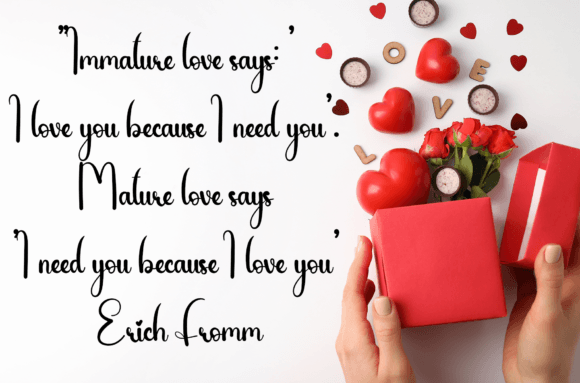 "Immature love says: '
I love you because I need you'.
Mature love says
"I need you because I love you'
Erich Fromm
L O V E